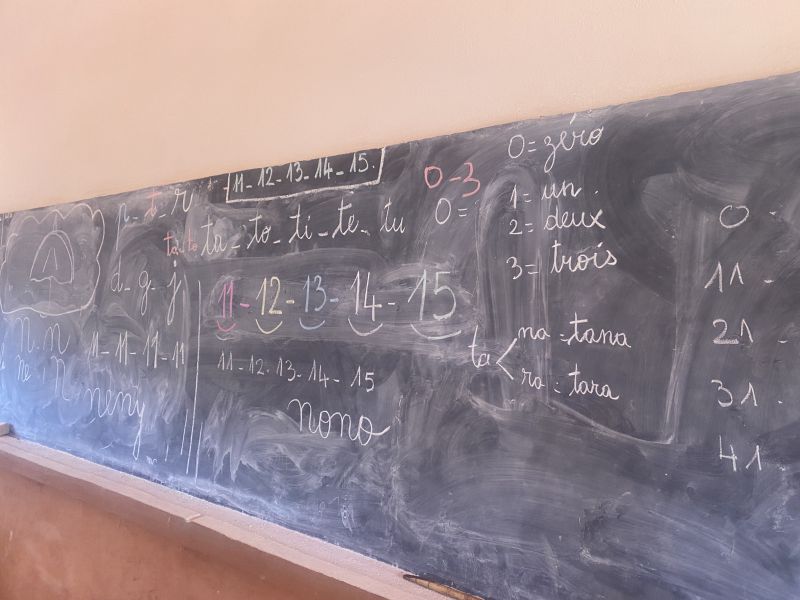 11-12-13-14-15.
n-t-r
ta-to-ti-te-tu
d-g-j
11-12-13-14-15
11-11-11-11
11-12-13-14-15
n.n
neny
nono
0-3
0= zéro
0=
1= un.
2= deux
3= trois
ta
na-tana
ra-tara
0
11
21
31
41